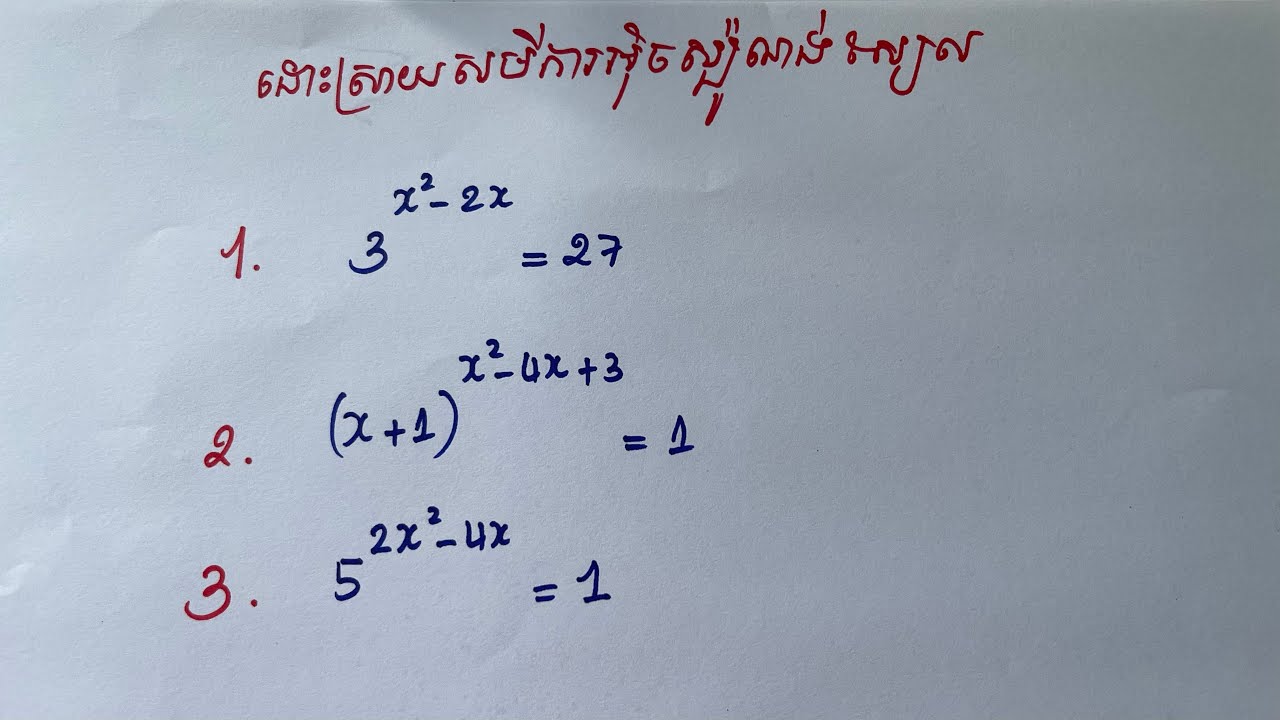 ដោះស្រាយសមីការអ៊ិចស្ប៉ូណង់ស្យែល
1. 3^{x^2 - 2x} = 27
2. (x+1)^{x^2 - 4x + 3} = 1
3. 5^{2x^2 - 4x} = 1